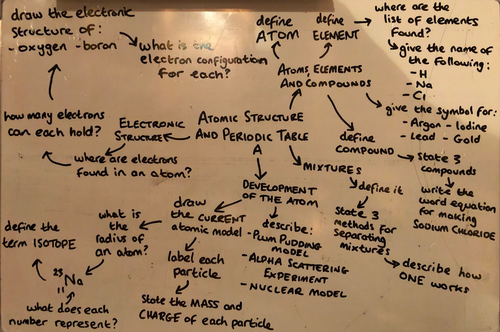 draw the electronic
structure of:
- oxygen - boron
what is the
electron configuration
for each?
how many electrons
can each hold?
ELECTRONIC
STRUCTURE
where are electrons
found in an atom?
ATOMIC STRUCTURE
AND PERIODIC TABLE
A
define
ATOM
define
ELEMENT
where are the
list of elements
found?
give the name of
the following:
- H
- Na
- Cl
ATOMS, ELEMENTS
AND COMPOUNDS
give the symbol for:
- Argon - Iodine
- Lead - Gold
define
COMPOUND
State 3
compounds
write the
word equation
for making
SODIUM CHLORIDE
MIXTURES
define it
State 3
methods for
separating
mixtures
describe how
ONE works
DEVELOPMENT
OF THE ATOM
describe:
- PLUM PUDDING
MODEL
- ALPHA SCATTERING
EXPERIMENT
- NUCLEAR MODEL
draw
the CURRENT
atomic model
label each
particle
State the MASS and
CHARGE of each particle
what is
the
radius of
an atom?
define the
term ISOTOPE
23
Na
11
what does each
number represent?